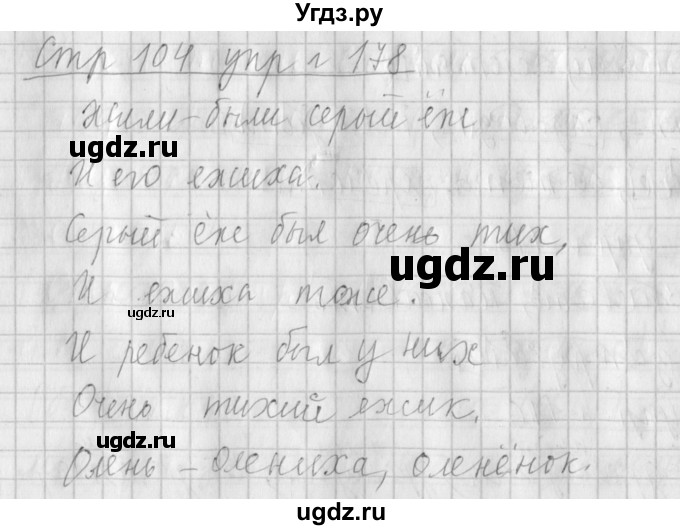 Угдз.ру
Стр 104 упр г 178
Жили-были серый ёж
ugdz.ru
И его ежиха.
Серый ёж был очень тих,
ugdz.ru
И ежиха тоже.
ugdz.ru
И ребёнок был у них
Очень тихий ежик.
ugdz.ru
Олень - олениха, оленёнок.
ugdz.ru